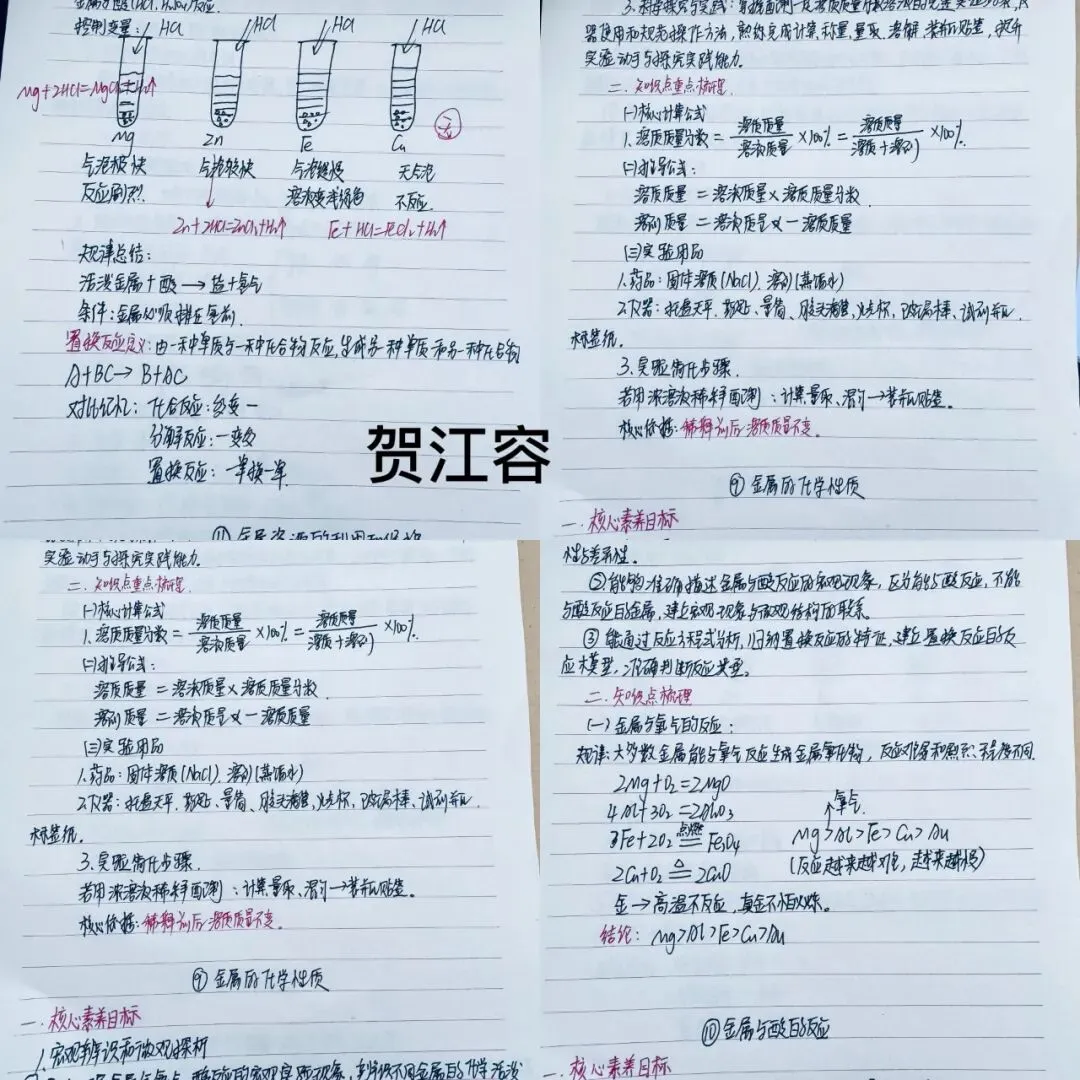 金属与酸(HCl, H₂SO₄)反应.
控制变量:
HCl HCl HCl HCl
Mg+2HCl=MgCl₂+H₂↑
Mg Zn Fe Cu
气泡极快 气泡较快 气泡缓慢 无气泡
反应剧烈. 溶液变浅绿色 不反应.
Zn+2HCl=ZnCl₂+H₂↑ Fe+HCl=FeCl₂+H₂↑
规律总结:
活泼金属+酸→盐+氢气
条件:金属必须排在氢前.
置换反应定义:由一种单质与一种化合物反应,生成另一种单质和另一种化合物
A+BC→B+AC
对比记忆: 化合反应:多变一
分解反应:一变多
置换反应: 单换一单.
⑪金属资源的利用和保护
器使用和规范操作方法,熟练完成计算、称量、量取、溶解、装瓶贴签,提升
实验动手与探究实践能力.
二.知识点重点梳理.
(一)核心计算公式
1.溶质质量分数=溶质质量/溶液质量×100%=溶质质量/(溶质+溶剂)×100%.
(二)推导公式:
溶质质量=溶液质量×溶质质量分数.
溶剂质量=溶液质量 一溶质质量
(三)实验用品
1.药品:固体溶质(NaCl).溶剂(蒸馏水)
2.仪器:托盘天平、药匙、量筒、胶头滴管,烧杯,玻璃棒、试剂瓶.
标签纸.
3.实验简化步骤.
若用浓溶液稀释配制:计算、量取、混匀→装瓶贴签.
核心依据:稀释前后溶质质量不变。
⑨金属的化学性质
一.核心素养目标
贺江容
实验动手与探究实践能力.
二.知识点重点梳理.
(一)核心计算公式
1.溶质质量分数=溶质质量/溶液质量×100%=溶质质量/(溶质+溶剂)×100%.
(二)推导公式:
溶质质量=溶液质量×溶质质量分数.
溶剂质量=溶液质量 一溶质质量
(三)实验用品
1.药品:固体溶质(NaCl).溶剂(蒸馏水)
2.仪器:托盘天平、药匙、量筒、胶头滴管,烧杯,玻璃棒、试剂瓶.
标签纸.
3.实验简化步骤.
若用浓溶液稀释配制:计算、量取、混匀→装瓶贴签.
核心依据:稀释前后溶质质量不变。
⑨金属的化学性质
一.核心素养目标
1.宏观辨识和微观探析
性与差异性.
②能够准确描述金属与酸反应的宏观现象,区分能与酸反应,不能
与酸反应的金属,建立宏观现象与微观结构的联系.
③能通过反应方程式分析,归纳置换反应的特征,建立置换反应的反
应模型,准确判断反应类型。
二.知识点梳理
(一)金属与氧气的反应:
规律:大多数金属能与氧气反应生成金属氧化物,反应难易和剧烈程度不同.
2Mg+O₂=2MgO
4Al+3O₂=2Al₂O₃ 氧气
3Fe+2O₂ 点燃 Fe₃O₄ Mg>Al>Fe>Cu>Au
2Cu+O₂ △ 2CuO (反应越来越难,越来越慢)
金→高温不反应,真金不怕火炼.
结论:Mg>Al>Fe>Cu>Au
⑩金属与酸的反应
一.核心素养目标